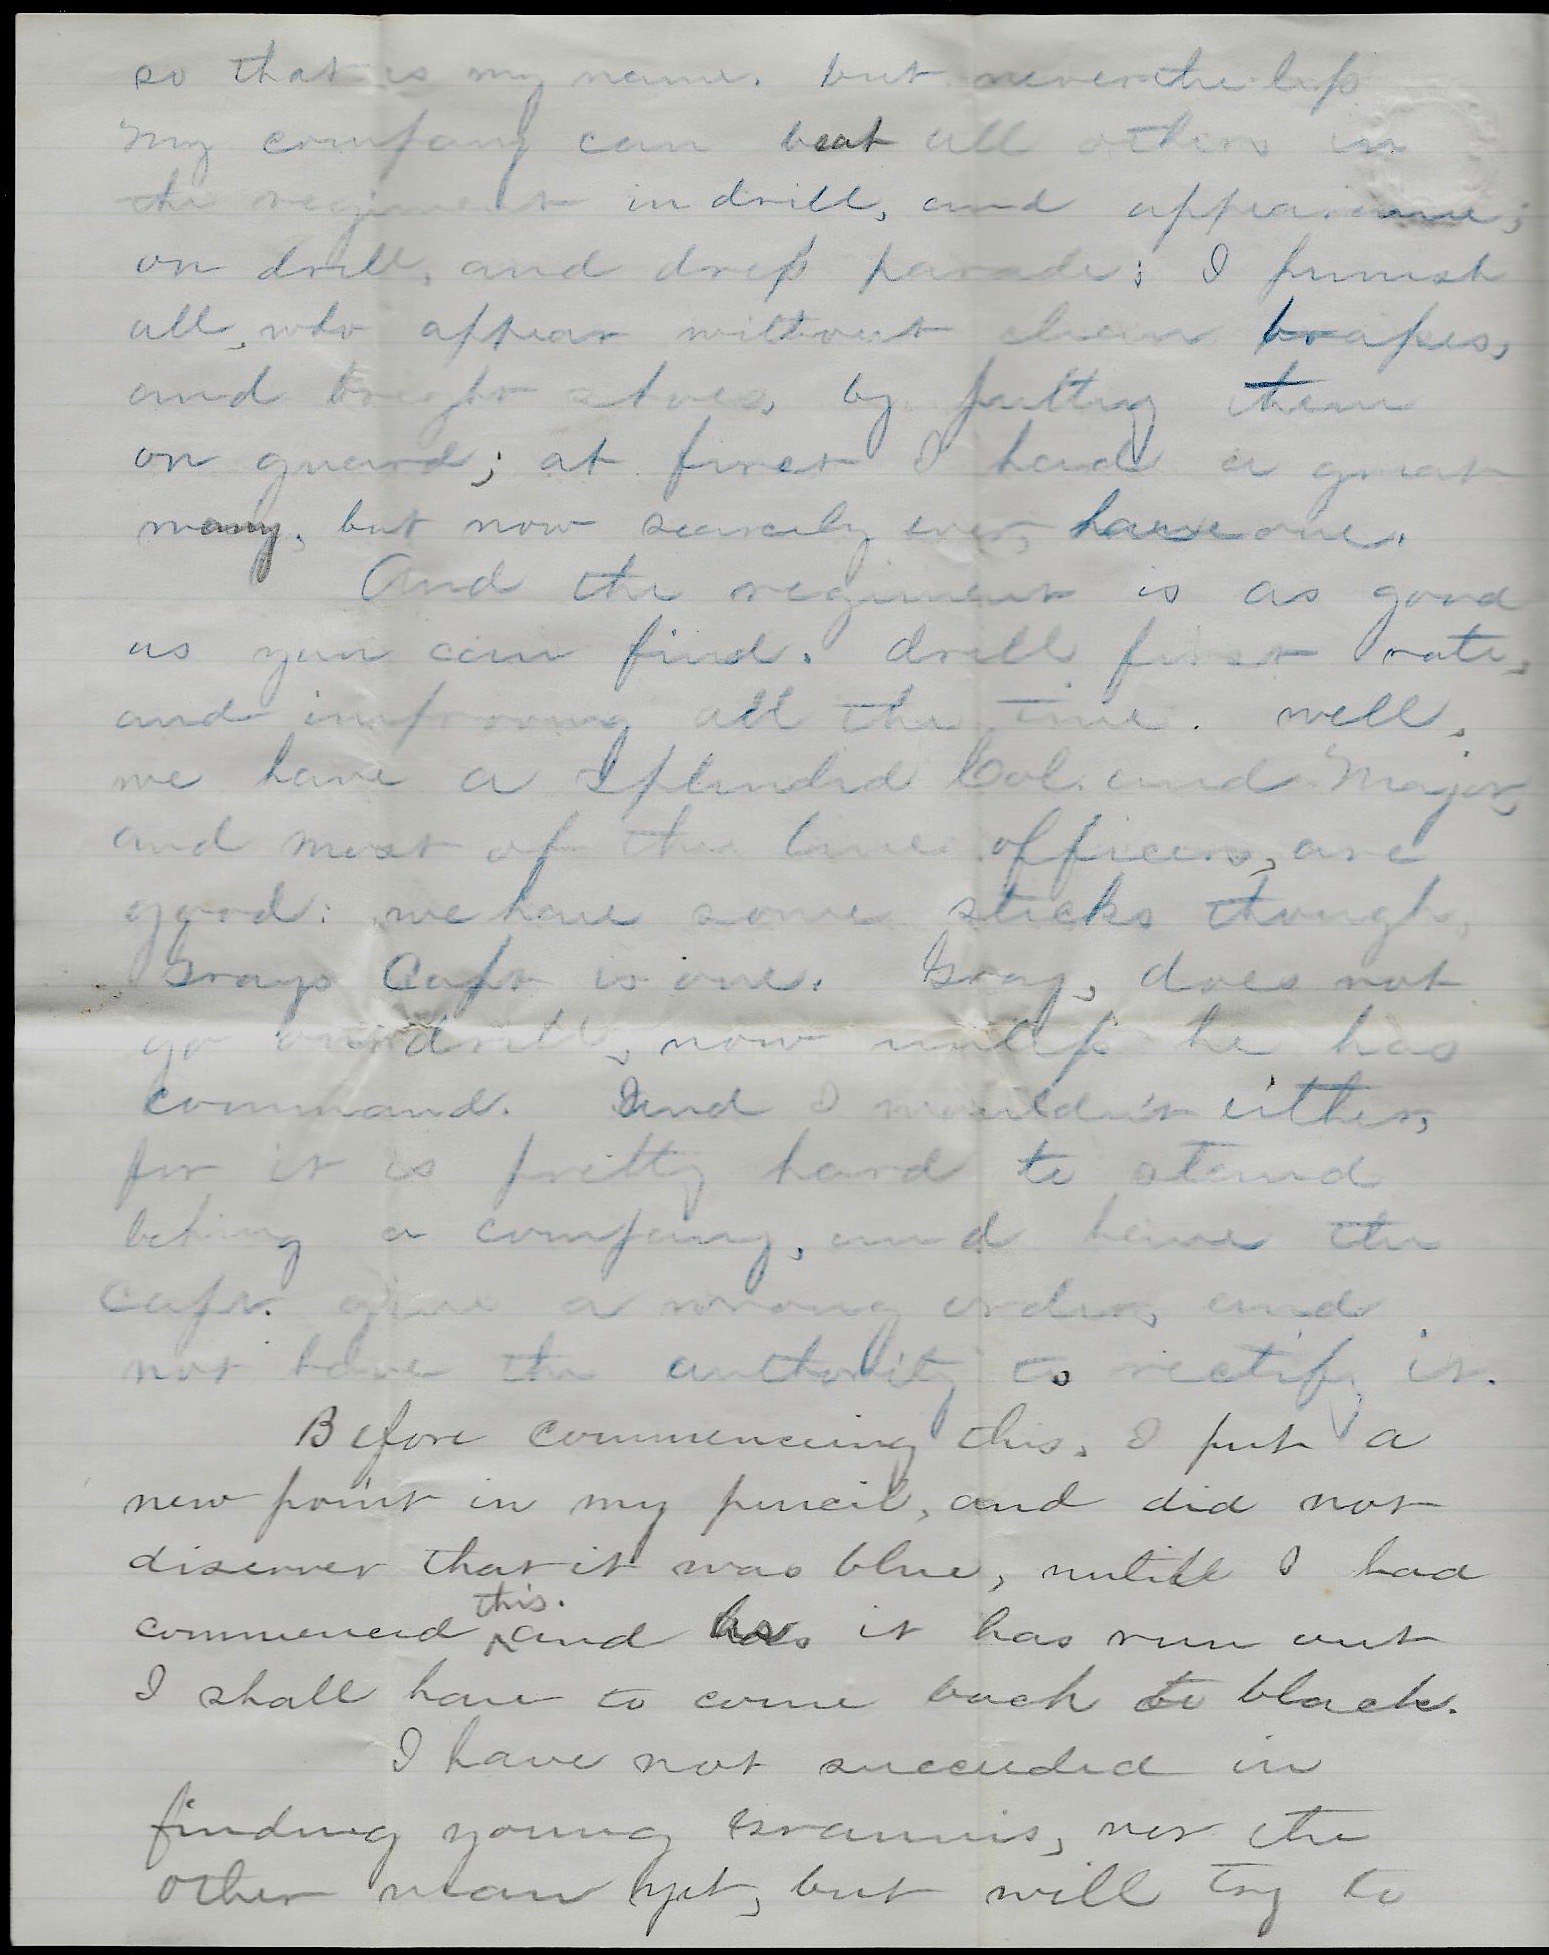 so that is my name. but nevertheless
My company can beat all others in
the regiment in drill, and appearance;
on drill, and dress parade; I punish
all, who appear without clean brasses,
and bright shoes, by putting them
on guard; at first I had a great
many, but now scarcely ever, have one.
And the regiment is as good
as you can find. drill first rate,
and improving all the time. well,
we have a splendid Col. and Major,
and most of the line officers, are
good: we have some sticks though,
Grays Capt is one. Gray, does not
go on drill, now unless he has
command. And I wouldn't either,
for it is pretty hard to stand
behing a company, and have the
Capt. give a wrong order, and
not have the authority to rectify it.
Before commencing this, I put a
new point in my pencil, and did not
discover that it was blue, untill I had
commenced this. and as it has run out
I shall have to come back to black.
I have not succeeded in
finding young, nor the
other man yet, but will try to